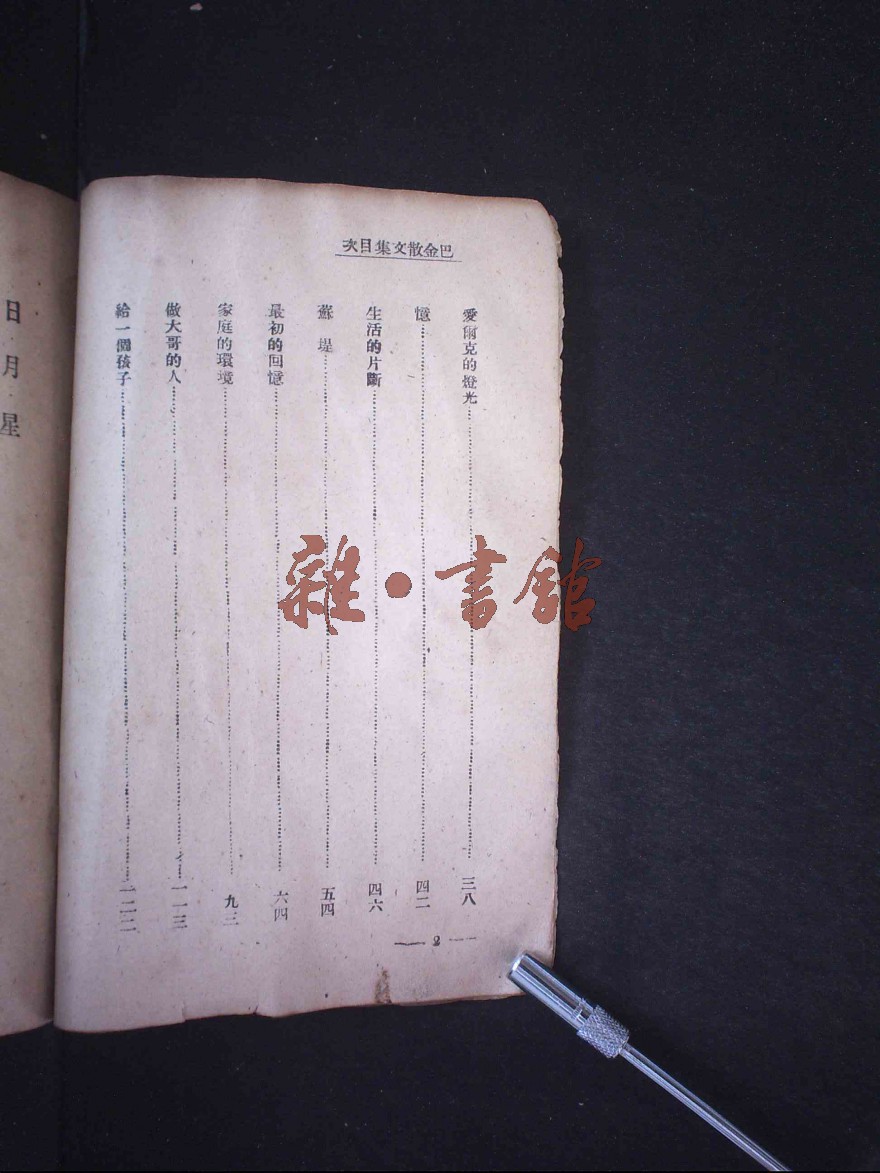 巴金散文集目次
愛爾克的燈光……三八
憶……四二
生活的片斷……四六
蘇堤……五四
最初的回憶……六四
家庭的環境……九三
做大哥的人……一一三
給一個孩子……一二二
— 2 —
日月星
雜·書館